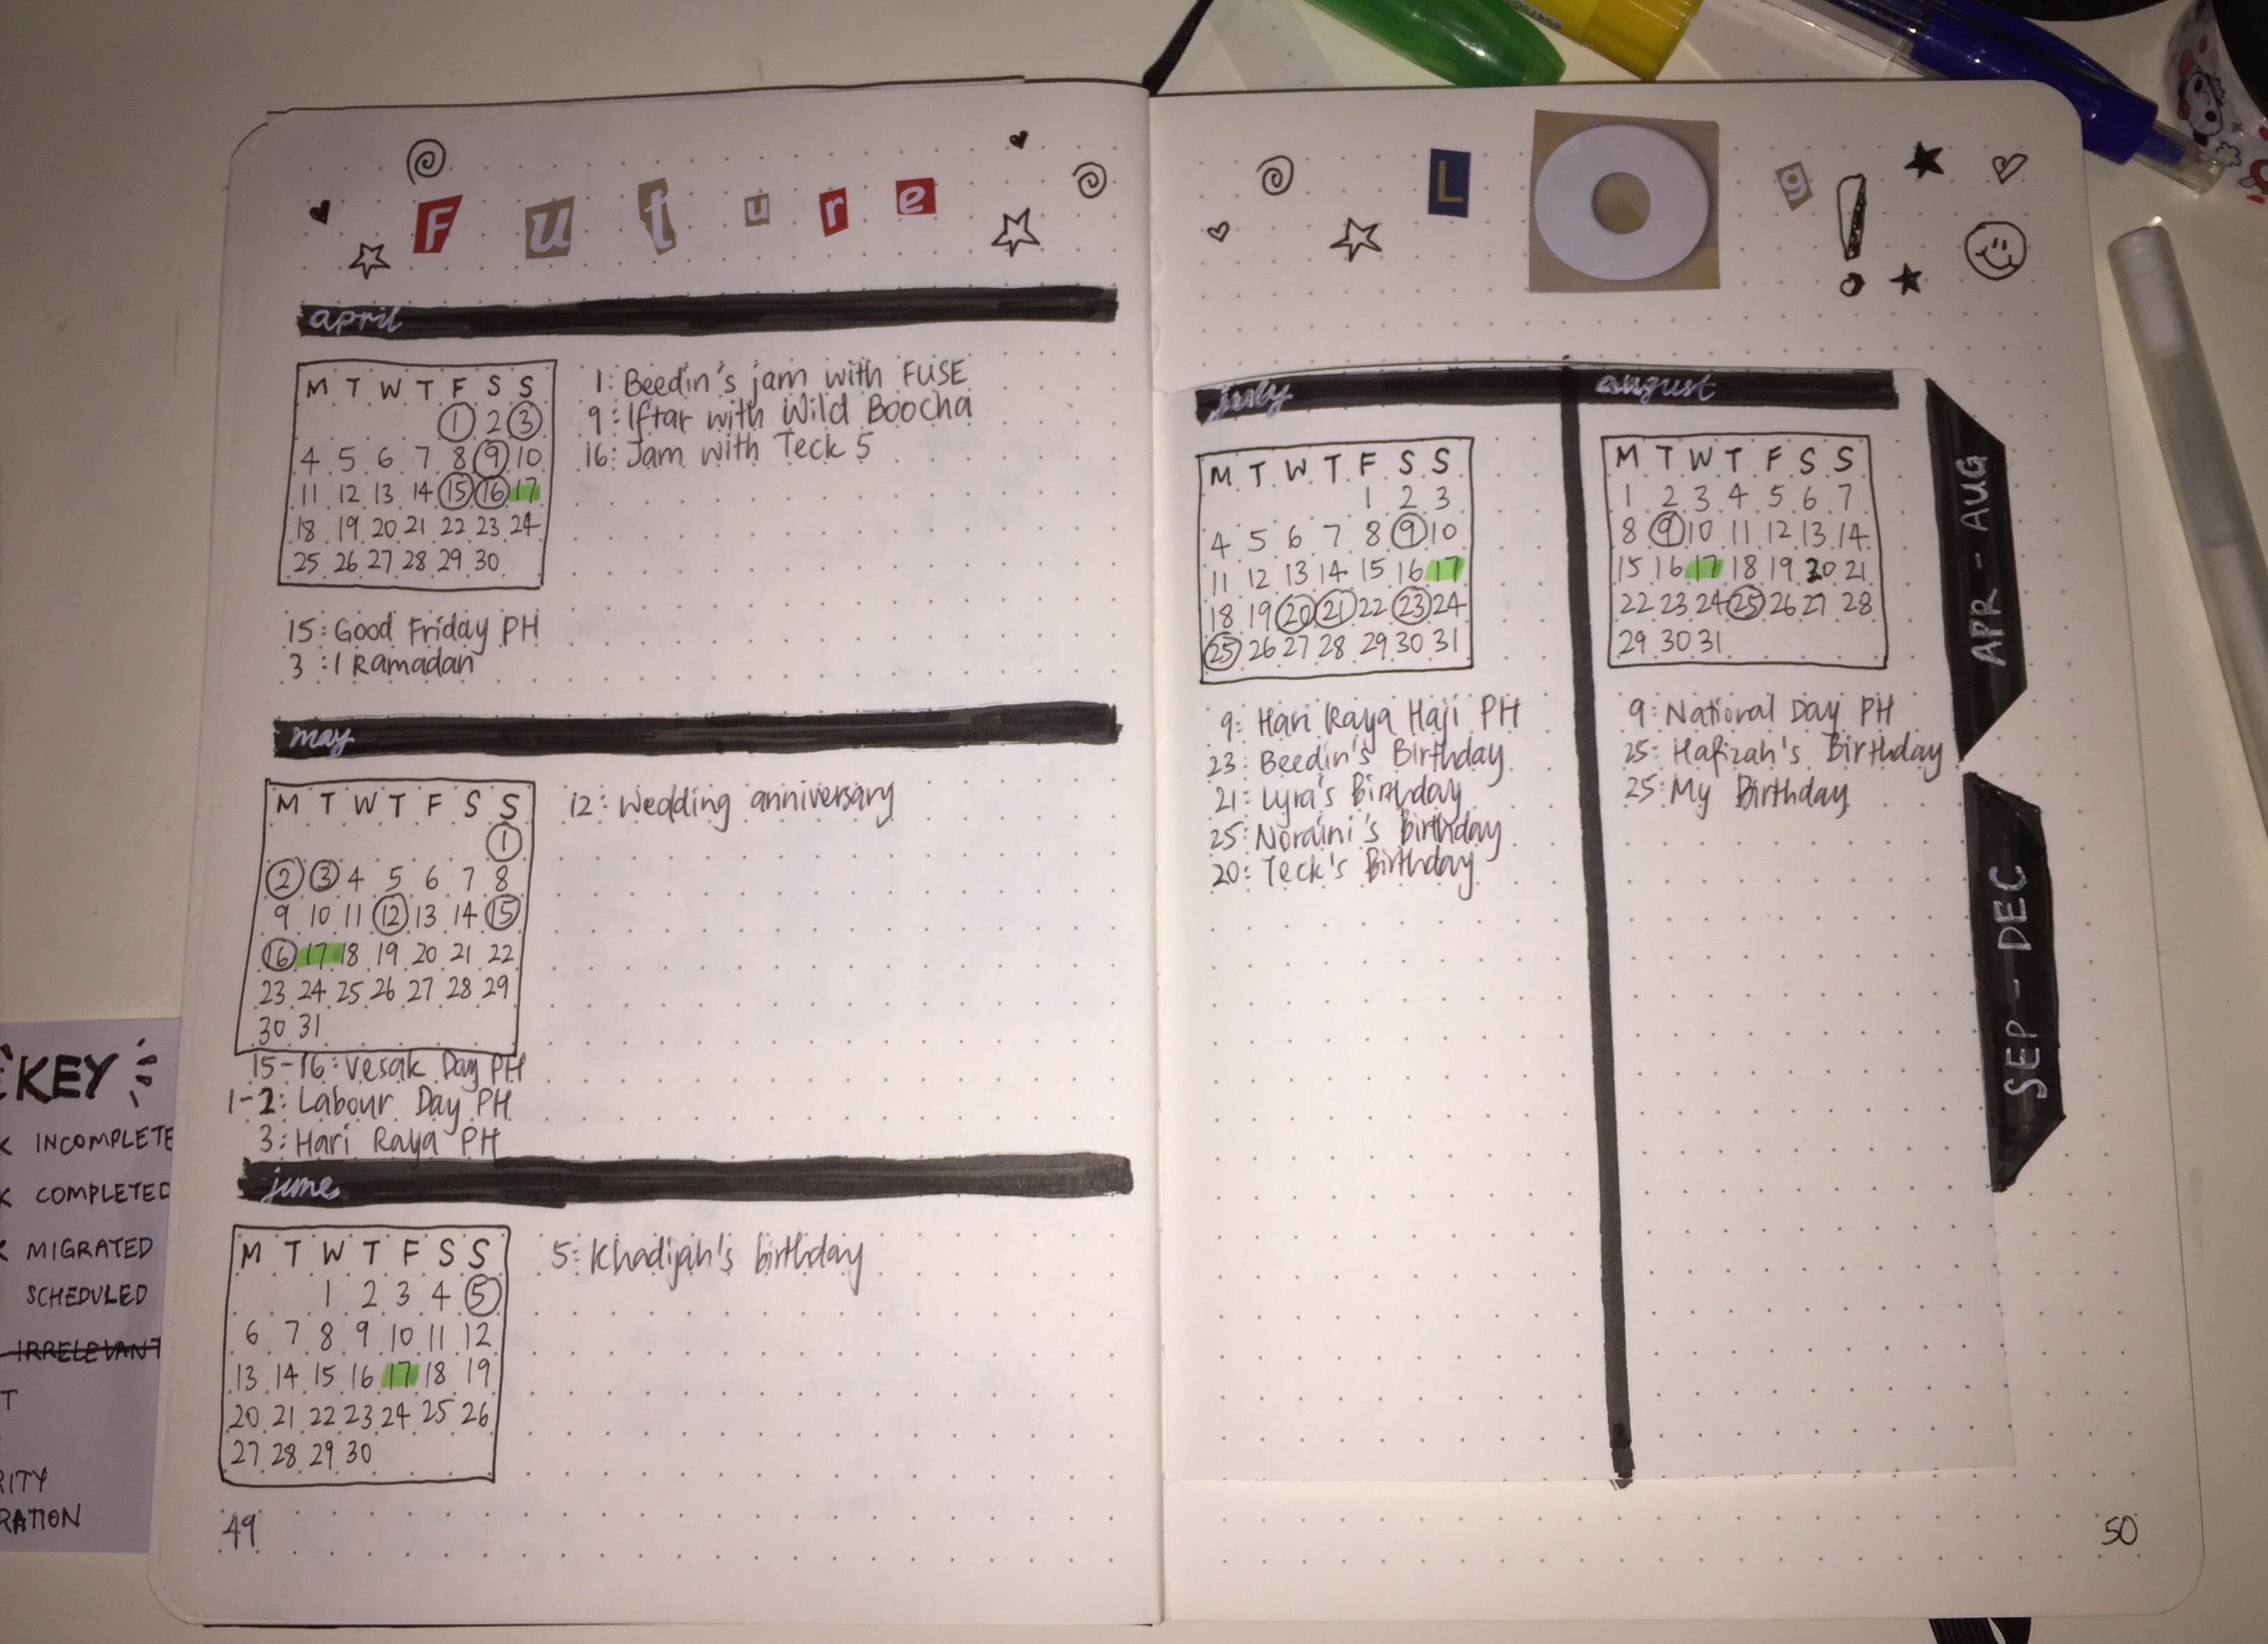 Future
april
M T W T F S S
1 2 3
4 5 6 7 8 9 10
11 12 13 14 15 16 17
18 19 20 21 22 23 24
25 26 27 28 29 30
1: Beedin's jam with FUSE
9: Iftar with Wild Boocha
16: Jam with Teck 5
15: Good Friday PH
3 : 1 Ramadan
may
M T W T F S S
1
2 3 4 5 6 7 8
9 10 11 12 13 14 15
16 17 18 19 20 21 22
23 24 25 26 27 28 29
30 31
12: Wedding anniversary
15-16: Vesak Day PH
1-2: Labour Day PH
3: Hari Raya PH
june
M T W T F S S
1 2 3 4 5
6 7 8 9 10 11 12
13 14 15 16 17 18 19
20 21 22 23 24 25 26
27 28 29 30
5: Khadijah's birthday
49
LOg!
july
M T W T F S S
1 2 3
4 5 6 7 8 9 10
11 12 13 14 15 16 17
18 19 20 21 22 23 24
25 26 27 28 29 30 31
9: Hari Raya Haji PH
23: Beedin's Birthday
21: Lyra's Birthday
25: Noraini's Birthday
20: Teck's Birthday
august
M T W T F S S
1 2 3 4 5 6 7
8 9 10 11 12 13 14
15 16 17 18 19 20 21
22 23 24 25 26 27 28
29 30 31
9: National Day PH
25: Hafizah's Birthday
25: My Birthday
APR - AUG
SEP - DEC
50
KEY
INCOMPLETE
COMPLETED
MIGRATED
SCHEDULED
IRRELEVANT